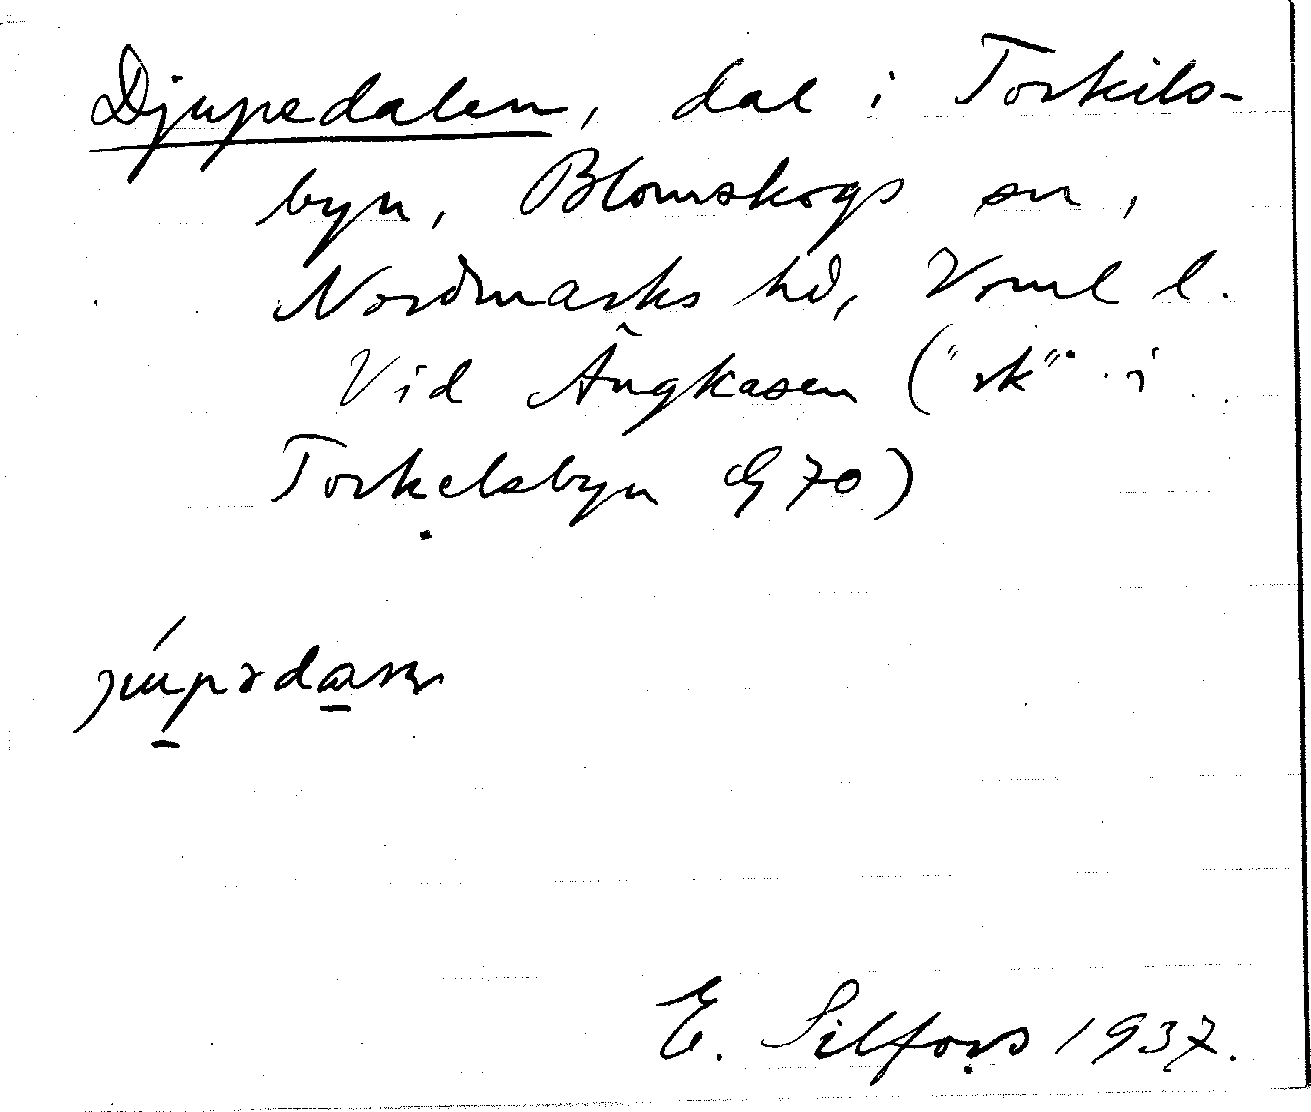 Djupedalen, dal i Torkils-
byn, Blomskogs sn,
Nordmarks hd, Vrml l.
Vid Ängkasen ("rk" i
Torkelsbyn G 70)
E. Silfors 1937.